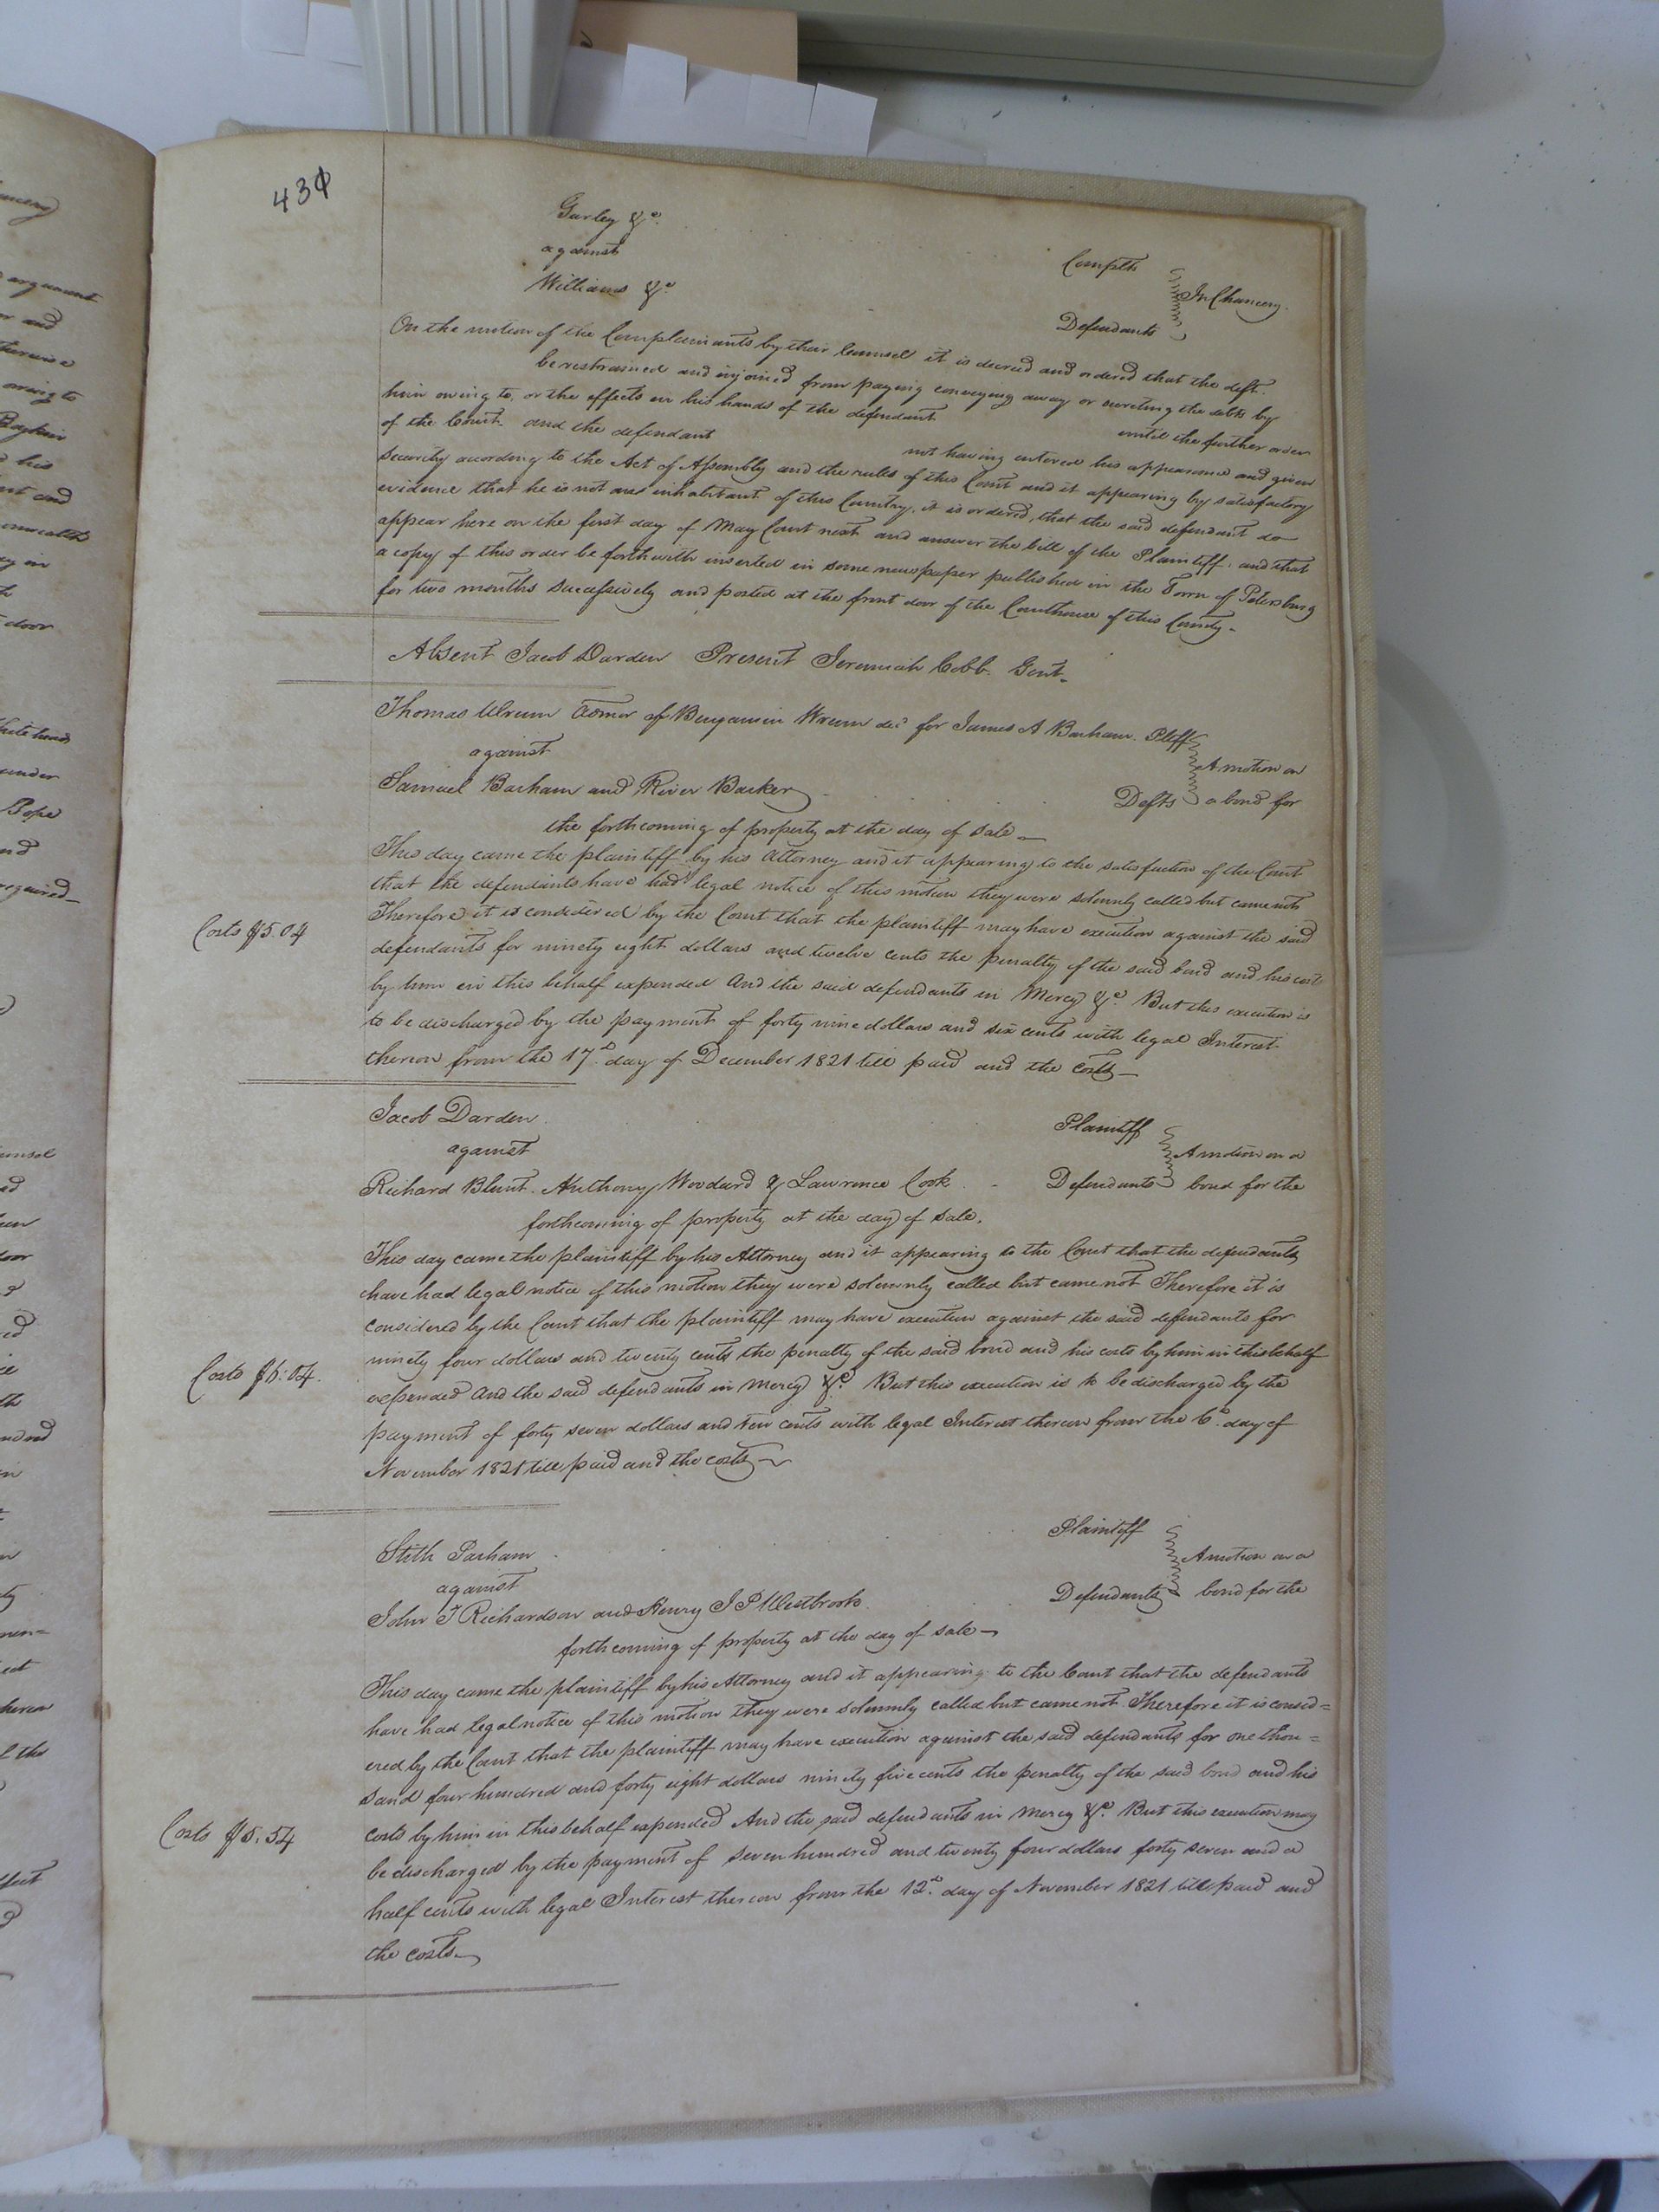 430
Gurley &c.
against
Complts
Williams &c.
In Chancery.
Defendants
On the motion of the Complainants by their Counsel it is decreed and ordered that the deft.
be restrained and injoined from paying conveying away or secreting the debts by
him owing to, or the effects in his hands of the defendant until the further order
of the Court and the defendant not having entered his appearance and given
security according to the Act of Assembly and the rules of this Court and it appearing by satisfactory
evidence that he is not an inhabitant of this Country, it is ordered, that the said defendant do
appear here on the first day of May Court next and answer the bill of the Plaintiff, and that
a copy of this order be forthwith inserted in some newspaper published in the Town of Petersburg
for two months successively and posted at the front door of the Courthouse of this County-
Absent Jacob Darden Present Jeremiah Cobb. Gent-
Thomas Wrenn Admor of Benjamin Wrenn decd for James A Barham. Pltff
against
A motion on
Samuel Barham and River Barker
Defts a bond for
the forthcoming of property at the day of sale-
This day came the plaintiff by his Attorney and it appearing to the satisfaction of the Court
that the defendants have had legal notice of this motion they were solemnly called but came not
Therefore it is considered by the Court that the plaintiff may have execution against the said
Costs $5.04
defendants for ninety eight dollars and twelve cents the penalty of the said bond and his costs
by him in this behalf expended And the said defendants in Mercy &c. But this execution is
to be discharged by the payment of forty nine dollars and six cents with legal Interest
thereon from the 17th day of December 1821 till paid and the costs-
Jacob Darden.
Plaintiff
against
A motion on a
Richard Blunt. Anthony Woodard & Lawrence Cook
Defendants bond for the
forthcoming of property at the day of sale.
This day came the plaintiff by his Attorney and it appearing to the Court that the defendants
have had legal notice of this motion they were solemnly called but came not Therefore it is
considered by the Court that the plaintiff may have execution against the said defendants for
ninety four dollars and twenty cents the penalty of the said bond and his costs by him in this behalf
Costs $5:04.
expended And the said defendants in Mercy &c. But this execution is to be discharged by the
payment of forty seven dollars and ten cents with legal Interest thereon from the 6th day of
November 1821 till paid and the costs-
Stith Parham
Plaintiff
A motion on a
against
Defendants bond for the
John T Richardson and Henry J P Westbrook
forthcoming of property at the day of sale-
This day came the plaintiff by his Attorney and it appearing to the Court that the defendants
have had legal notice of this motion they were solemnly called but came not. Therefore it is consid=
ered by the Court that the plaintiff may have execution against the said defendants for one thou=
sand four hundred and forty eight dollars ninety five cents the penalty of the said bond and his
Costs $5.54
costs by him in this behalf expended And the said defendants in Mercy &c. But this execution may
be discharged by the payment of seven hundred and twenty four dollars forty seven and a
half cents with legal Interest thereon from the 12th day of November 1821 till paid and
the costs-